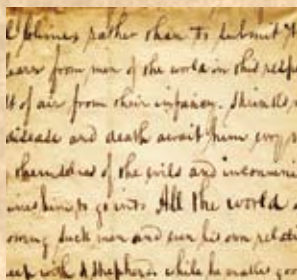 rather than to submit
from men of the world in this resp
of air from their infancy.
disease and death await him
themselves of the evils and inconveni
him to go into All the world
such men and even his own relati
with a Shepherd while he makes goo